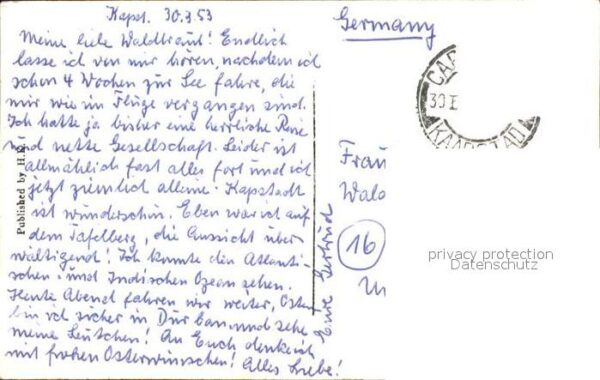 Kapst. 30.3.53
Meine liebe Waldtraut! Endlich
lasse ich von mir hören, nachdem ich
schon 4 Wochen zur See fahre, die
mir wie im Fluge vergangen sind.
Ich hatte ja bisher eine herrliche Reise
und nette Gesellschaft. Leider ist
allmählich fast alles fort und ich
jetzt ziemlich alleine. Kapstadt
ist wunderschön. Eben war ich auf
dem Tafelberg, die Aussicht über
wältigend! Ich konnte den Atlanti-
schen- und Indischen Ozean sehen.
Heute Abend fahren wir weiter, Ostern
bin ich sicher in Durban und sehe
meine Leutchen! An Euch denke ich
mit frohen Osterwünschen! Alles Liebe!
Eure Gertrud
Published by H.
Germany
CAP
30 I
KAAPSTAD
Frau
Wald
16
privacy protection
Datenschutz